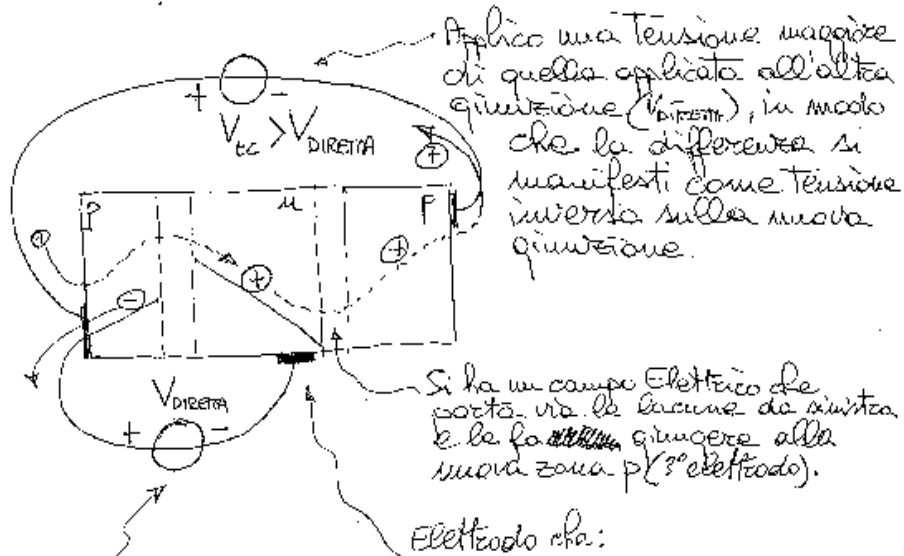 Applico una tensione maggiore
di quella applicata all'altra
giunzione (V DIRETTA), in modo
che la differenza si
manifesti come tensione
inversa sulla nuova
giunzione.
+ -
V EC > V DIRETTA
+
p n p
+ + +
-
V DIRETTA
+ -
Si ha un campo Elettrico che
porta via le lacune da sinistra
e le fa giungere alla
nuova zona p (3° elettrodo).
Elettrodo che: